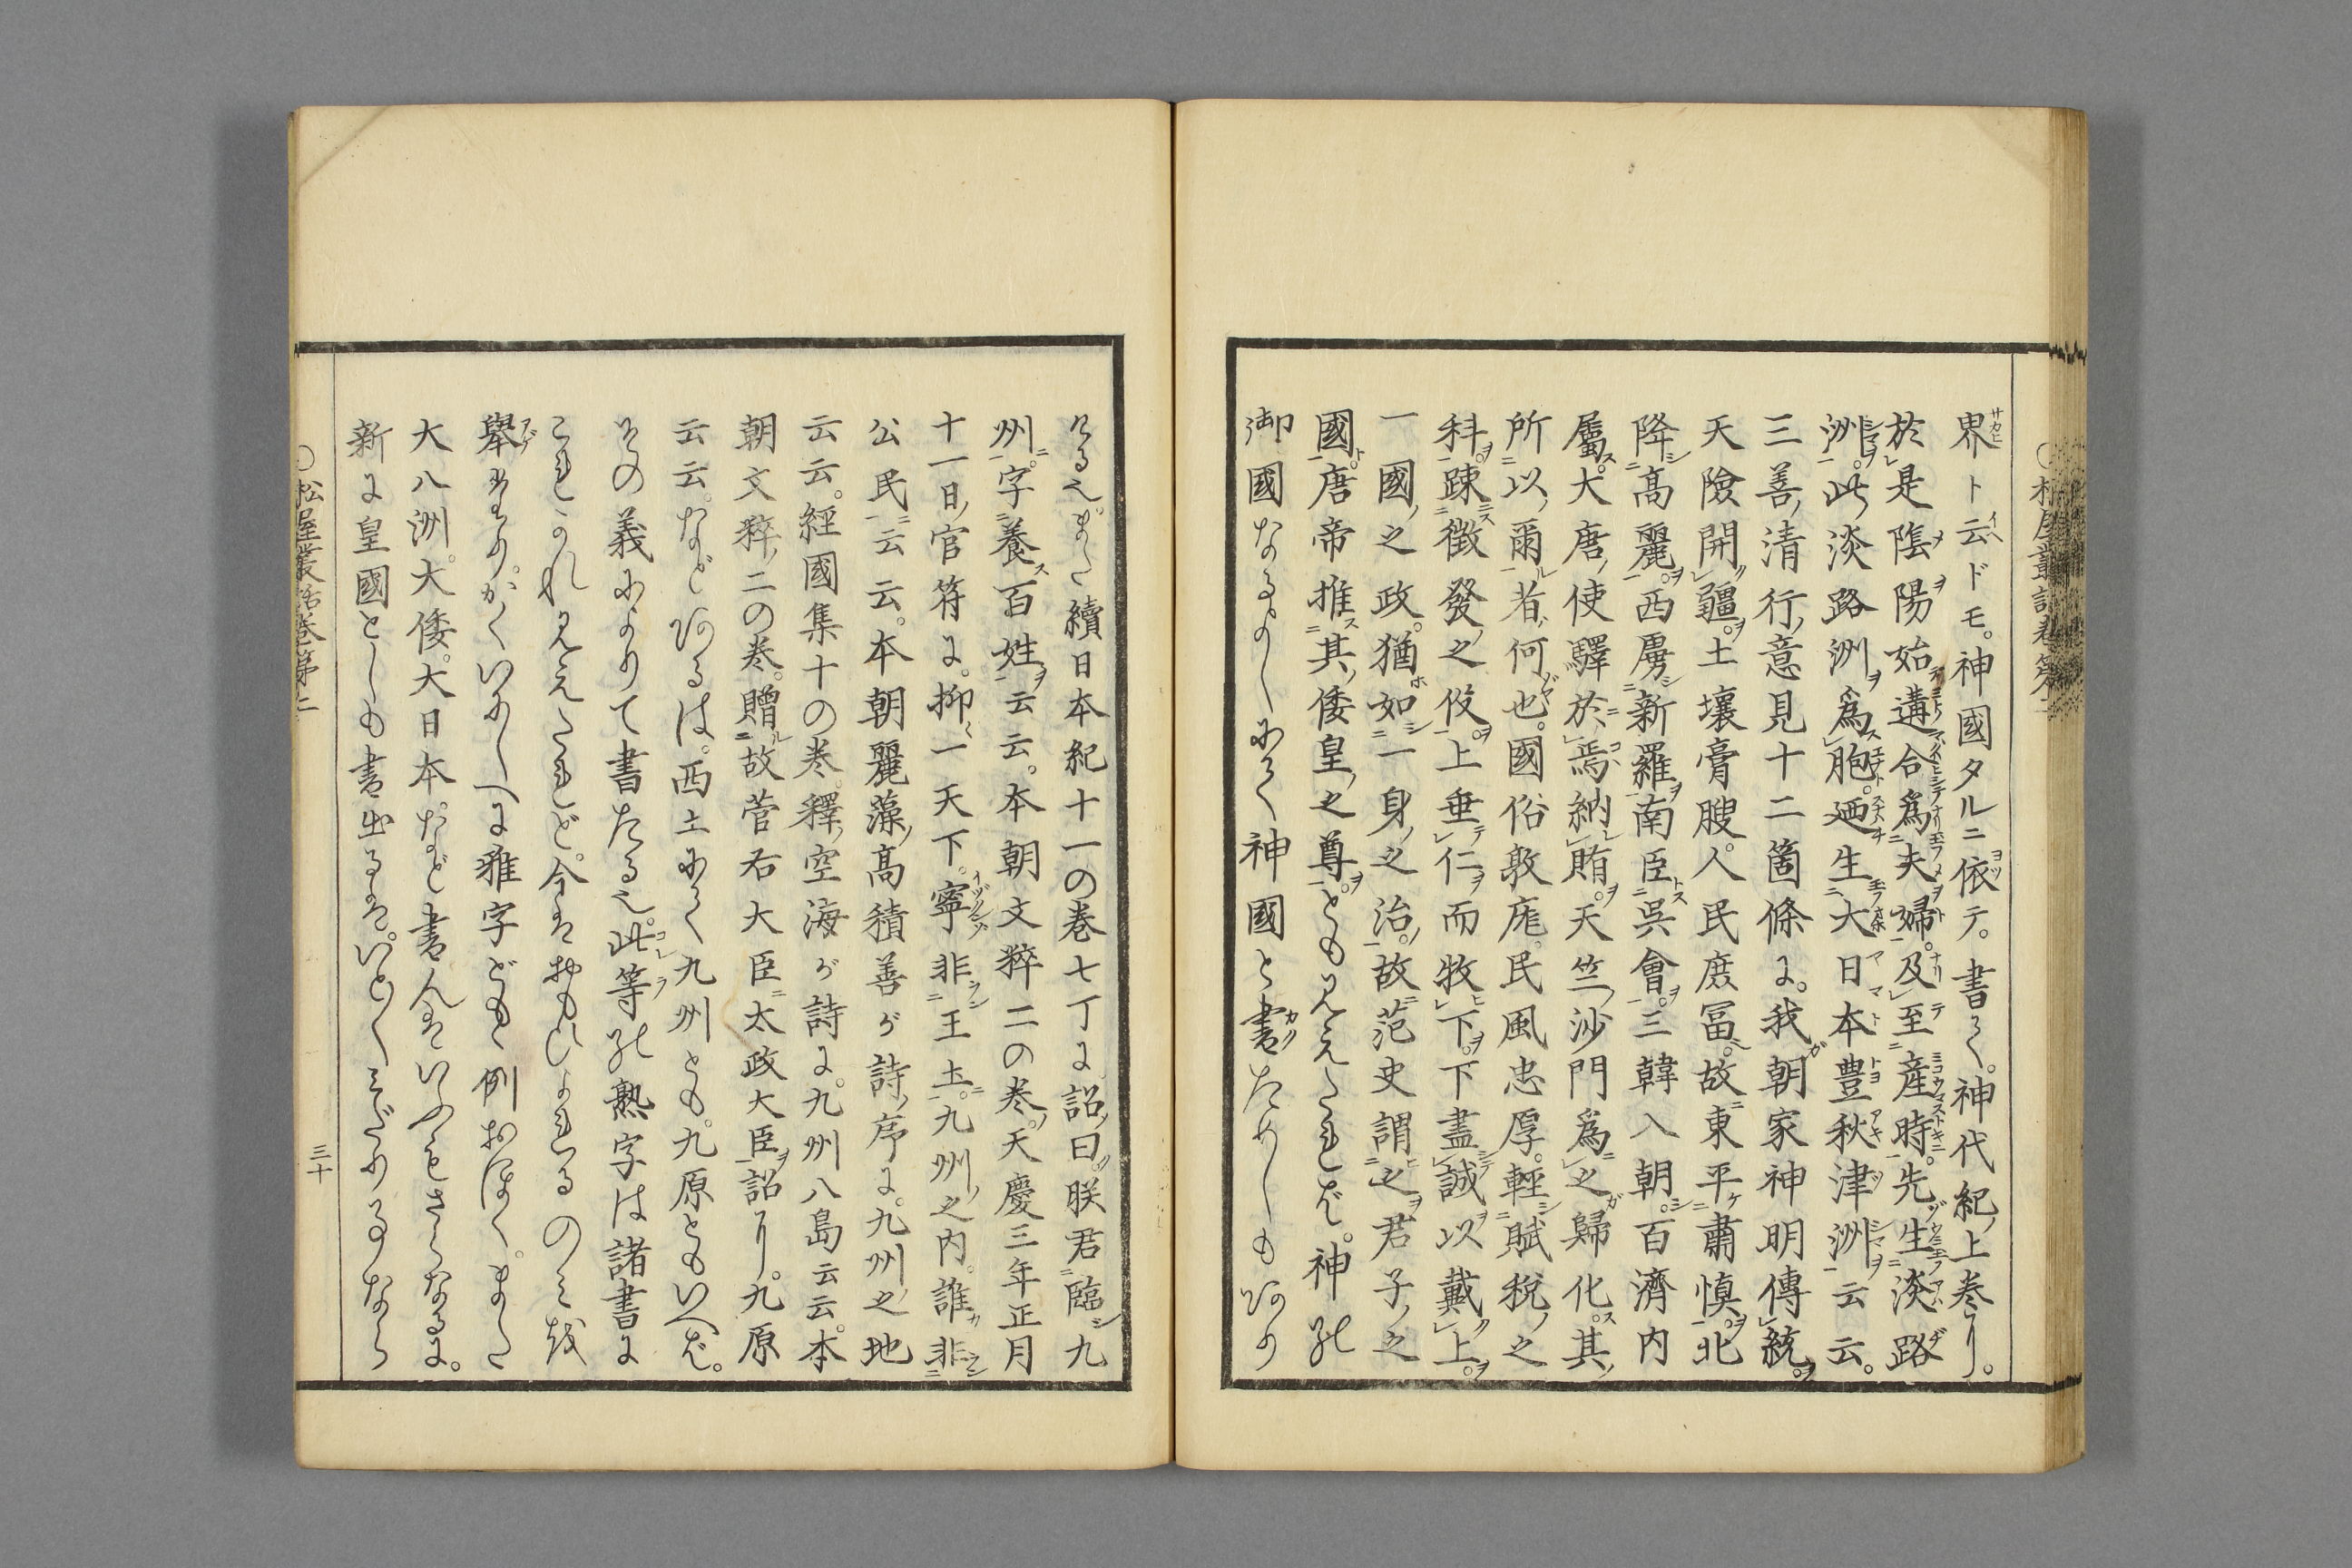 界ト云ドモ。神國タルニ依テ。書く。神代紀ノ上巻り。
於是陰陽始遘合爲夫婦。及至産時。先生淡路
洲。此淡路洲ヲ爲胞。廼生大日本豊秋津洲云云。
三善ノ清行ノ意見十二箇條に。我朝家神明傳統。
天險開疆。土壤膏腴。人民庶冨。故東平肅愼。北
降高麗。西虜新羅南臣吳會。三韓入朝。百濟内
屬。大唐ノ使驛於焉納賄。天竺ノ沙門爲之歸化。其
所以爾者何也。國俗敦庬。民風忠厚。輕賦稅ノ之
科。踈徵發ノ之伇。上垂仁而牧下。下盡誠以戴上。
一國ノ之政。猶如一身ノ之治。故范史謂之君子ノ之
國。唐帝推其倭皇ノ之尊。とも見えたれど。神の
御國なるよしにて神國と書ためしもあり
けるに。また續日本紀十一の巻七丁に詔ノ曰。朕君臨九
州。字養百姓云云。本朝文粹二の巻。天慶三年正月
十一日ノ官符に。抑一天下。寧非王土。九州ノ之内。誰非
公民云云。本朝麗藻ノ高積善が詩ノ序に。九州ノ之地
云云。經國集十の巻釋ノ空海が詩に。九州八島云云。本
朝文粹ノ二の巻。贈故菅右大臣太政大臣詔り。九原
云云。などあるは。西土にて九州とも。九原ともいへば。
その義によりて書たる也。此等の熟字は諸書に
これかれ見えたれど。今はおもひよれるのみを
擧たり。かくいにしへに雅字ども例おほく。また
大八洲。大倭。大日本。など書んはいふもさらなるに。
新に皇國としも書出るは。いとくみだりなるなら
○松屋叢話巻第二
三十